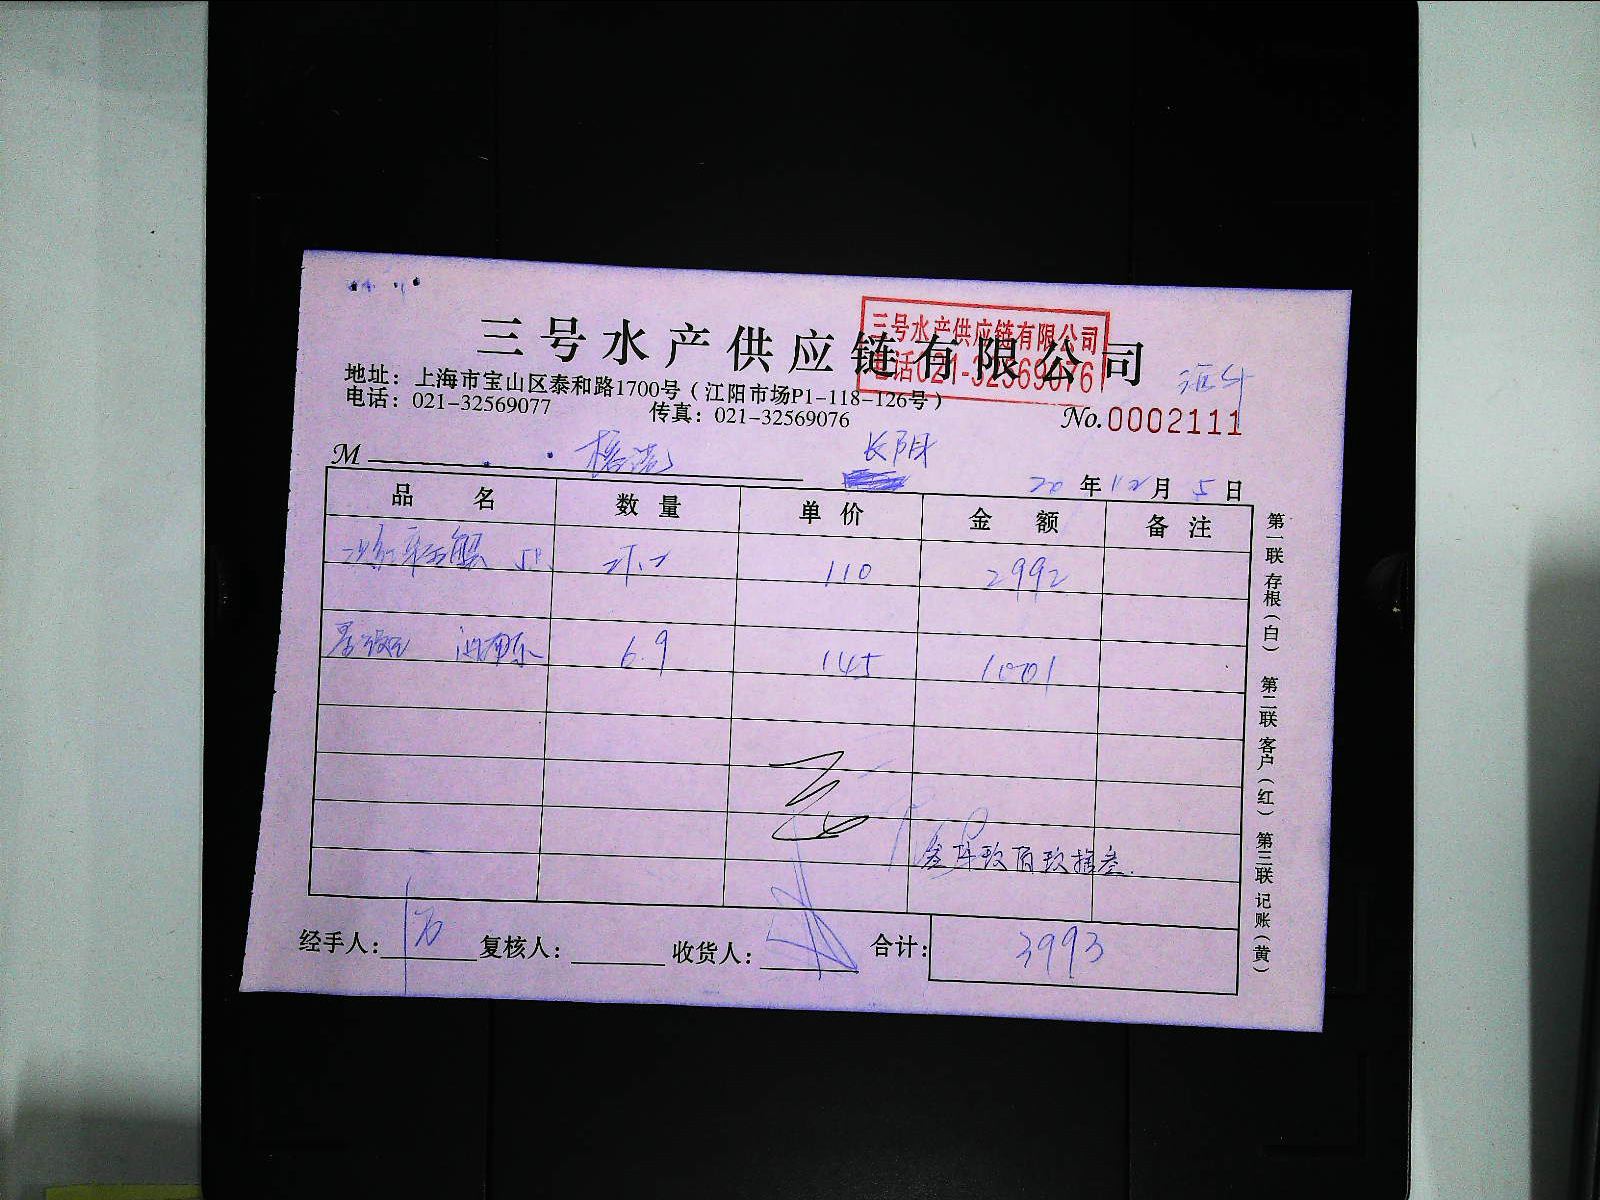 三号水产供应链有限公司
三号水产供应链有限公司
电话021-32569076
地址：上海市宝山区泰和路1700号（江阳市场P1-118-126号）
电话：021-32569077 传真：021-32569076
No.0002111
M 长阳
20 年 12 月 5 日
品名 数量 单价 金额 备注
110 2992
6.9 145 1001
叁仟玖百玖拾叁
经手人： 复核人： 收货人： 合计： 3993
第一联 存根（白） 第二联 客户（红） 第三联 记账（黄）